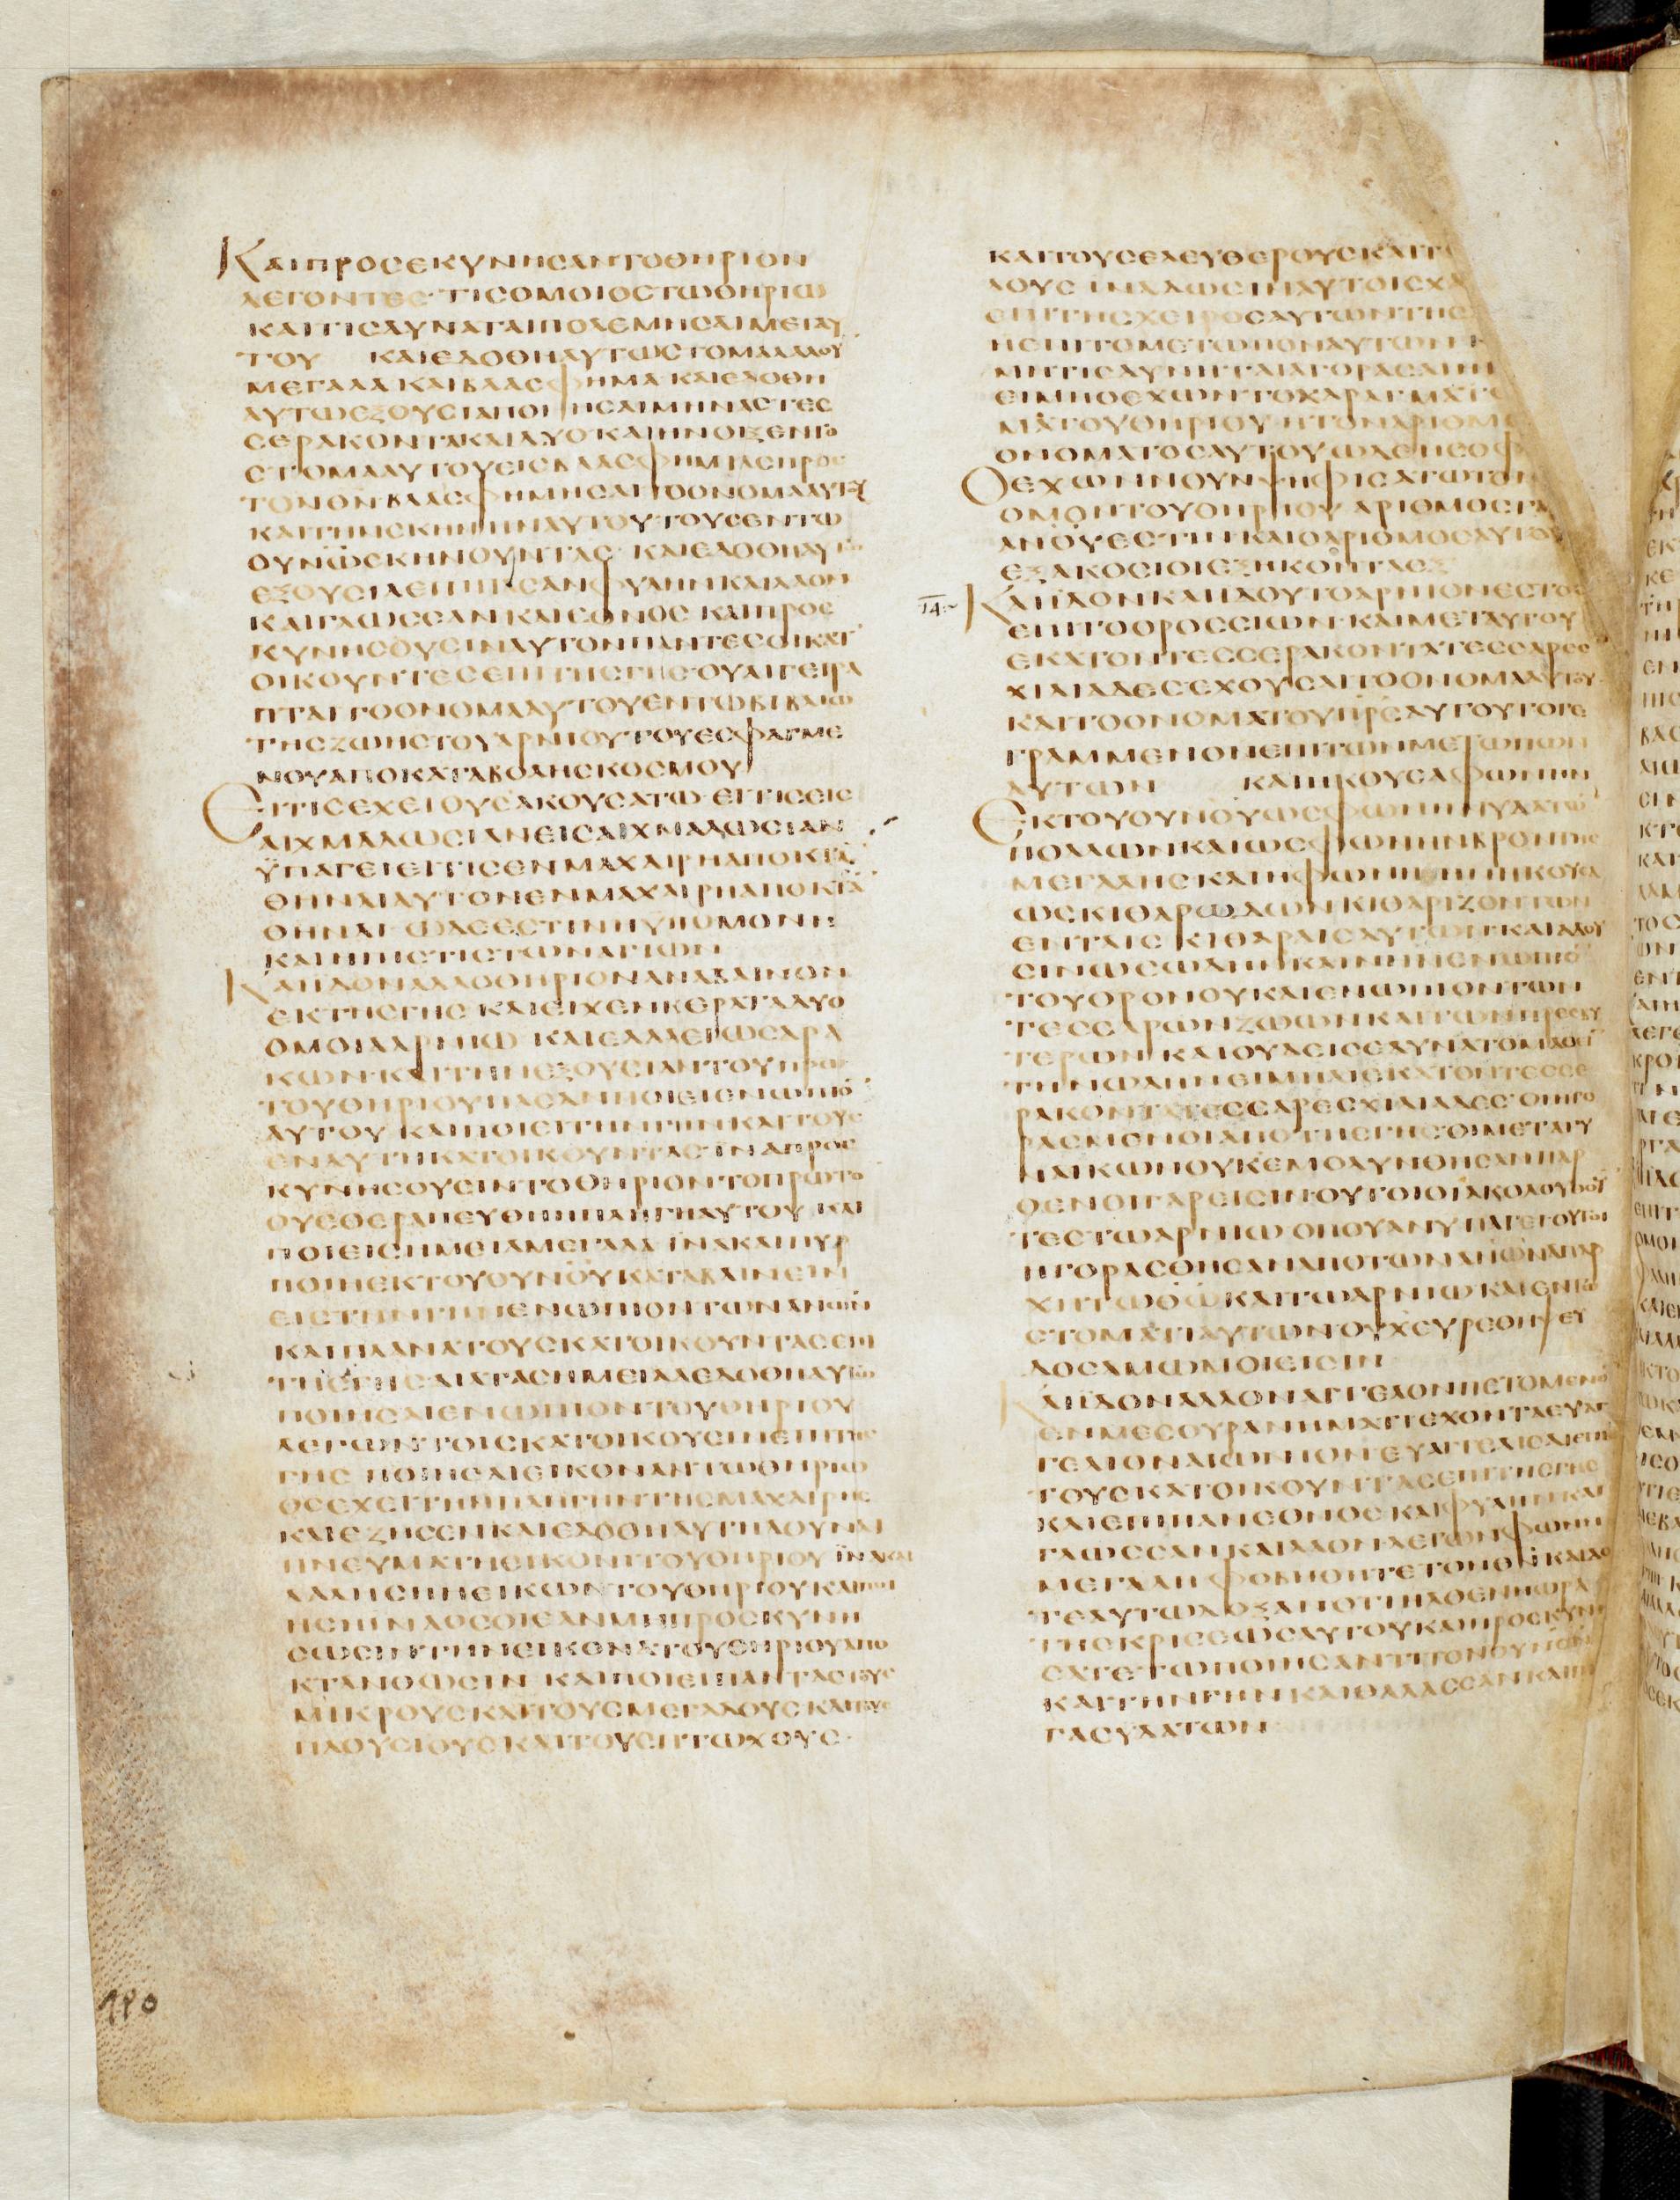 ΚΑΙΠΡΟCΕΚΥΝΗCΑΝΤΟΘΗΡΙΟΝ
ΛΕΓΟΝΤΕC· ΤΙCΟΜΟΙΟCΤΩΘΗΡΙΩ
ΚΑΙΤΙCΔΥΝΑΤΑΙΠΟΛΕΜΗCΑΙΜΕΤΑΥ
ΤΟΥ ΚΑΙΕΔΟΘΗΑΥΤΩCΤΟΜΑΛΑΛΟΥ
ΜΕΓΑΛΑ ΚΑΙΒΛΑCΦΗΜΑ· ΚΑΙΕΔΟΘΗ
ΑΥΤΩΕΞΟΥCΙΑΠΟΙΗCΑΙΜΗΝΑCΤΕC
CΕΡΑΚΟΝΤΑΚΑΙΔΥΟ ΚΑΙΗΝΟΙΞΕΝΤΟ
CΤΟΜΑΑΥΤΟΥΕΙCΒΛΑCΦΗΜΙΑCΠΡΟC
ΤΟΝΘΝ ΒΛΑCΦΗΜΗCΑΙΤΟΟΝΟΜΑΑΥΤΟΥ
ΚΑΙΤΗΝCΚΗΝΗΝΑΥΤΟΥ· ΤΟΥCΕΝΤΩ
ΟΥΝΩCΚΗΝΟΥΝΤΑC· ΚΑΙΕΔΟΘΗΑΥΤΩ
ΕΞΟΥCΙΑΕΠΙΠΑCΑΝΦΥΛΗΝΚΑΙΛΑΟΝ
ΚΑΙΓΛΩCCΑΝ ΚΑΙΕΘΝΟC ΚΑΙΠΡΟC
ΚΥΝΗCΟΥCΙΝΑΥΤΟΝΠΑΝΤΕCΟΙΚΑΤ
ΟΙΚΟΥΝΤΕCΕΠΙΤΗCΓΗC· ΟΥΑΙΓΕΓΡΑ
ΠΤΑΙΤΟΟΝΟΜΑΑΥΤΟΥΕΝΤΩΒΙΒΛΙΩ
ΤΗCΖΩΗCΤΟΥΑΡΝΙΟΥΤΟΥΕCΦΑΓΜΕ
ΝΟΥΑΠΟΚΑΤΑΒΟΛΗCΚΟCΜΟΥ
ΕΙΤΙCΕΧΕΙΟΥCΑΚΟΥCΑΤΩ· ΕΙΤΙCΕΙC
ΑΙΧΜΑΛΩCΙΑΝΕΙCΑΙΧΜΑΛΩCΙΑΝ
ΫΠΑΓΕΙΕΙΤΙCΕΝΜΑΧΑΙΡΗΑΠΟΚΤΑ
ΘΗΝΑΙΑΥΤΟΝΕΝΜΑΧΑΙΡΗΑΠΟΚΤΑ
ΘΗΝΑΙ· ΩΔΕΕCΤΙΝΗΫΠΟΜΟΝΗ
ΚΑΙΗΠΙCΤΙCΤΩΝΑΓΙΩΝ
ΚΑΙΪΔΟΝΑΛΛΟΘΗΡΙΟΝΑΝΑΒΑΙΝΟΝ
ΕΚΤΗCΓΗC ΚΑΙΕΙΧΕΝΚΕΡΑΤΑΔΥΟ
ΟΜΟΙΑΑΡΝΙΩ ΚΑΙΕΛΑΛΕΙΩCΔΡΑ
ΚΩΝ· ΚΑΙΤΗΝΕΞΟΥCΙΑΝΤΟΥΠΡΩ
ΤΟΥΘΗΡΙΟΥΠΑCΑΝΠΟΙΕΙΕΝΩΠΙΟ
ΑΥΤΟΥ ΚΑΙΠΟΙΕΙΤΗΝΓΗΝΚΑΙΤΟΥC
ΕΝΑΥΤΗΚΑΤΟΙΚΟΥΝΤΑCΪΝΑΠΡΟC
ΚΥΝΗCΟΥCΙΝΤΟΘΗΡΙΟΝΤΟΠΡΩΤΟ
ΟΥΕΘΕΡΑΠΕΥΘΗΗΠΛΗΓΗΑΥΤΟΥ ΚΑΙ
ΠΟΙΕΙCΗΜΕΙΑΜΕΓΑΛΑ ΪΝΑΚΑΙΠΥΡ
ΠΟΙΗΕΚΤΟΥΟΥΝΟΥΚΑΤΑΒΑΙΝΕΙΝ
ΕΙCΤΗΝΓΗΝΕΝΩΠΙΟΝΤΩΝΑΝΩΝ
ΚΑΙΠΛΑΝΑΤΟΥCΚΑΤΟΙΚΟΥΝΤΑCΕΠΙ
ΤΗCΓΗCΔΙΑΤΑCΗΜΕΙΑΑΕΔΟΘΗΑΥΤΩ
ΠΟΙΗCΑΙΕΝΩΠΙΟΝΤΟΥΘΗΡΙΟΥ
ΛΕΓΩΝΤΟΙCΚΑΤΟΙΚΟΥCΙΝΕΠΙΤΗC
ΓΗC ΠΟΙΗCΑΙΕΙΚΟΝΑΝΤΩΘΗΡΙΩ
ΟCΕΧΕΙΤΗΝΠΛΗΓΗΝΤΗCΜΑΧΑΙΡΗC
ΚΑΙΕΖΗCΕΝΚΑΙΕΔΟΘΗΑΥΤΗΔΟΥΝΑΙ
ΠΝΕΥΜΑΤΗΕΙΚΟΝΙΤΟΥΘΗΡΙΟΥ ΪΝΑΚΑΙ
ΛΑΛΗCΗΗΕΙΚΩΝΤΟΥΘΗΡΙΟΥΚΑΙΠΟΙ
ΗCΗΙΝΑΟCΟΙΕΑΝΜΗΠΡΟCΚΥΝΗ
CΩCΙΝΤΗΝΕΙΚΟΝΑΤΟΥΘΗΡΙΟΥΑΠΟ
ΚΤΑΝΘΩCΙΝ ΚΑΙΠΟΙΕΙΠΑΝΤΑCΤΟΥC
ΜΙΚΡΟΥCΚΑΙΤΟΥCΜΕΓΑΛΟΥCΚΑΙΤΟΥC
ΠΛΟΥCΙΟΥCΚΑΙΤΟΥCΠΤΩΧΟΥC·
ΚΑΙΤΟΥCΕΛΕΥΘΕΡΟΥCΚΑΙΤ
ΛΟΥC ΙΝΑΔΩCΙΝΑΥΤΟΙCΧΑ
ΕΠΙΤΗCΧΕΙΡΟCΑΥΤΩΝΤΗC
ΗΕΠΙΤΟΜΕΤΩΠΟΝΑΥΤΩΝ Κ
ΜΗΤΙCΔΥΝΗΤΑΙΑΓΟΡΑCΑΙΗ
ΕΙΜΗΟΕΧΩΝΤΟΧΑΡΑΓΜΑΤ
ΜΑΤΟΥΘΗΡΙΟΥΗΤΟΝΑΡΙΘΜ
ΟΝΟΜΑΤΟCΑΥΤΟΥΩΔΕΗCΟΦ
ΟΕΧΩΝΝΟΥΝΨΗΦΙCΑΤΩΤΟΝ
ΘΜΟΝΤΟΥΘΗΡΙΟΥ ΑΡΙΘΜΟCΓΑ
ΑΝΟΥΕCΤΙΝΚΑΙΟΑΡΙΘΜΟCΑΥΤΟΥ
ΕΞΑΚΟCΙΟΙΕΞΗΚΟΝΤΑΕΞ
14:~ ΚΑΙΪΔΟΝΚΑΙΙΔΟΥΤΟΑΡΝΙΟΝΕCΤΟC
ΕΠΙΤΟΟΡΟCCΙΩΝ· ΚΑΙΜΕΤΑΥΤΟΥ
ΕΚΑΤΟΝΤΕCCΕΡΑΚΟΝΤΑΤΕCCΑΡΕC
ΧΙΛΙΑΔΕCΕΧΟΥCΑΙΤΟΟΝΟΜΑΑΥΤΟΥ
ΚΑΙΤΟΟΝΟΜΑΤΟΥΠΡCΑΥΤΟΥΤΟΓΕ
ΓΡΑΜΜΕΝΟΝΕΠΙΤΩΝΜΕΤΩΠΩΝ
ΑΥΤΩΝ ΚΑΙΗΚΟΥCΑΦΩΝΗΝ
ΕΚΤΟΥΟΥΝΟΥΩCΦΩΝΗΝΥΔΑΤΩ
ΠΟΛΛΩΝΚΑΙΩCΦΩΝΗΝΒΡΟΝΤΗC
ΜΕΓΑΛΗCΚΑΙΗΦΩΝΗΗΝΗΚΟΥCΑ
ΩCΚΙΘΑΡΩΔΩΝΚΙΘΑΡΙΖΟΝΤΩΝ
ΕΝΤΑΙC ΚΙΘΑΡΑΙCΑΥΤΩΝ· ΚΑΙΑΔΟΥ
CΙΝΩCΩΔΗΝΚΑΙΝΗΝΕΝΩΠΙΟ
ΤΟΥΘΡΟΝΟΥΚΑΙΕΝΩΠΙΟΝΤΩΝ
ΤΕCCΑΡΩΝΖΩΩΝΚΑΙΤΩΝΠΡΕCΒΥ
ΤΕΡΩΝ ΚΑΙΟΥΔΕΙCΕΔΥΝΑΤΟΜΑΘΕΙ
ΤΗΝΩΔΗΝΕΙΜΗΑΙΕΚΑΤΟΝΤΕCCΕ
ΡΑΚΟΝΤΑΤΕCCΑΡΕCΧΙΛΙΑΔΕC· ΟΙΗΓΟ
ΡΑCΜΕΝΟΙΑΠΟΤΗCΓΗCΟΙΜΕΤΑΓΥ
ΝΑΙΚΩΝΟΥΚΕΜΟΛΥΝΘΗCΑΝΠΑΡ
ΘΕΝΟΙΓΑΡΕΙCΙΝΟΥΤΟΙΟΙΑΚΟΛΟΥΘΟΥ
ΤΕCΤΩΑΡΝΙΩ ΟΠΟΥΑΝΥΠΑΓΕΙΟΥΤΟΙ
ΗΓΟΡΑCΘΗCΑΝΑΠΟΤΩΝΑΝΩΝΑΠΑΡ
ΧΗΤΩΘΩΚΑΙΤΩΑΡΝΙΩΚΑΙΕΝΤΩ
CΤΟΜΑΤΙΑΥΤΩΝΟΥΧΕΥΡΕΘΗΨΕΥ
ΔΟCΑΜΩΜΟΙΕΙCΙΝ
ΚΑΙΪΔΟΝΑΛΛΟΝΑΓΓΕΛΟΝΠΕΤΟΜΕΝΟ
ΕΝΜΕCΟΥΡΑΝΗΜΑΤΙΕΧΟΝΤΑΕΥΑΓ
ΓΕΛΙΟΝΑΙΩΝΙΟΝΕΥΑΓΓΕΛΙCΑΙΕΠΙ
ΤΟΥCΚΑΤΟΙΚΟΥΝΤΑCΕΠΙΤΗCΓΗC
ΚΑΙΕΠΙΠΑΝΕΘΝΟCΚΑΙΦΥΛΗΝΚΑΙ
ΓΛΩCCΑΝΚΑΙΛΑΟΝΛΕΓΩΝΦΩΝΗ
ΜΕΓΑΛΗΦΟΒΗΘΗΤΕΤΟΝΘΝΚΑΙΔΟ
ΤΕΑΥΤΩΔΟΞΑΝΟΤΙΗΛΘΕΝΗΩΡΑ
ΤΗCΚΡΙCΕΩCΑΥΤΟΥΚΑΙΠΡΟCΚΥΝΗ
CΑΤΕΤΩΠΟΙΗCΑΝΤΙΤΟΝΟΥΝΟΝ
ΚΑΙΤΗΝΓΗΝΚΑΙΘΑΛΑCCΑΝΚΑΙΠΗ
ΓΑCΥΔΑΤΩΝ